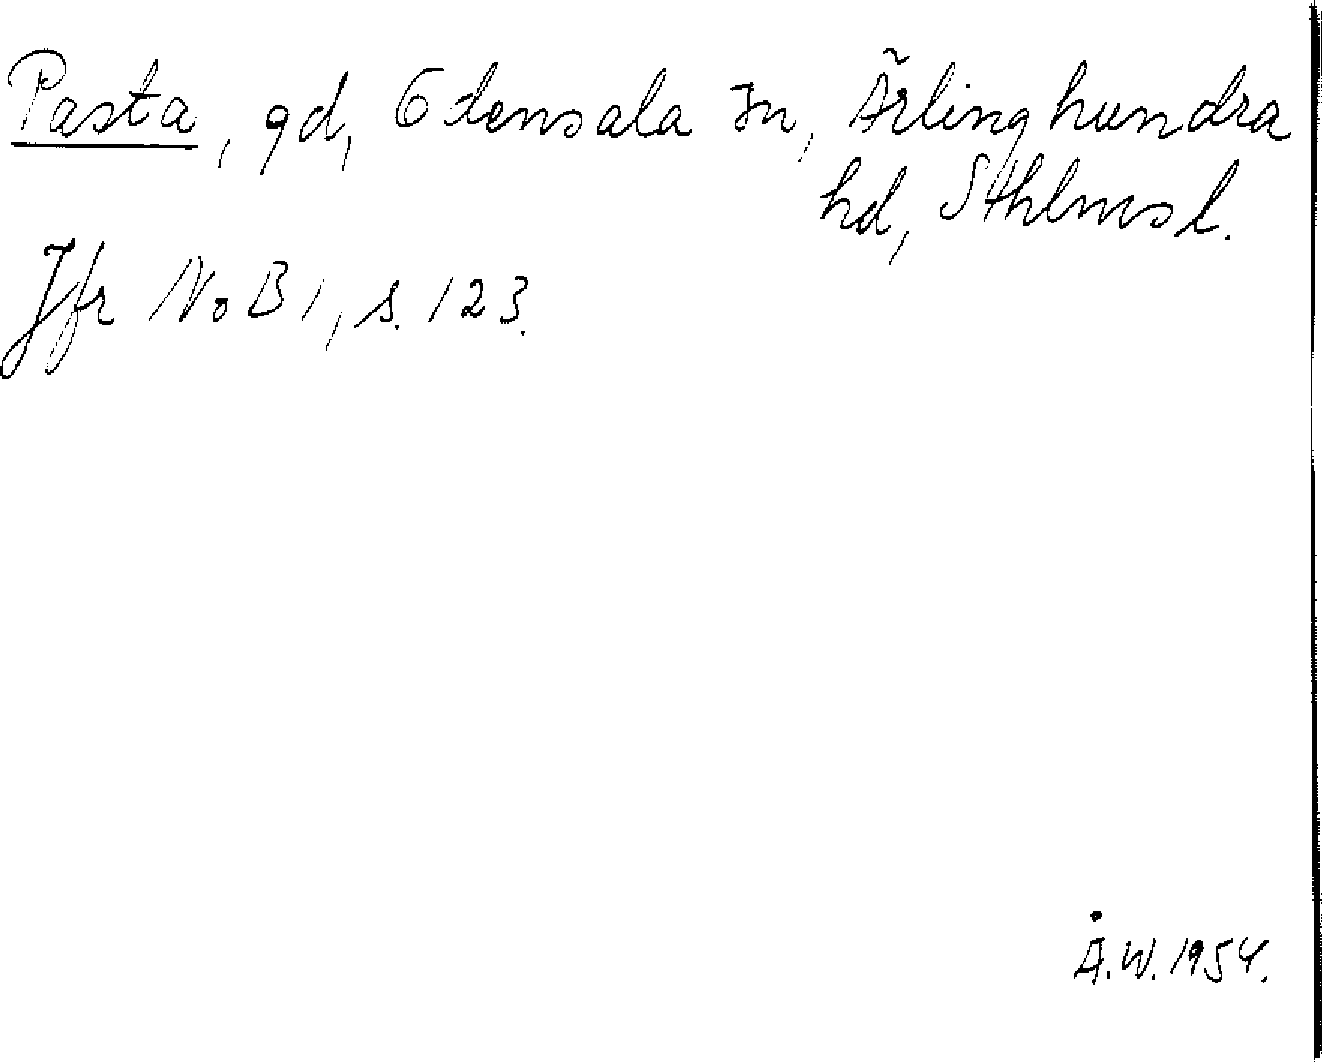 Pasta, gd, Odensala sn, Ärlinghundra
hd, Sthlms l.
Jfr NoB 1, s. 123.
Å.W. 1954.